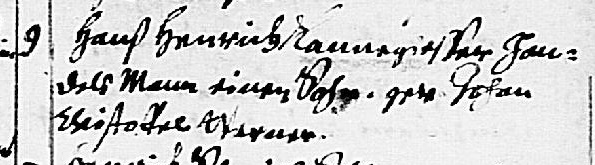 9 Hanß Henrich Kannegiesser Han=
dels Mann einen Sohn. gev. Johan
Christoffel Werner.